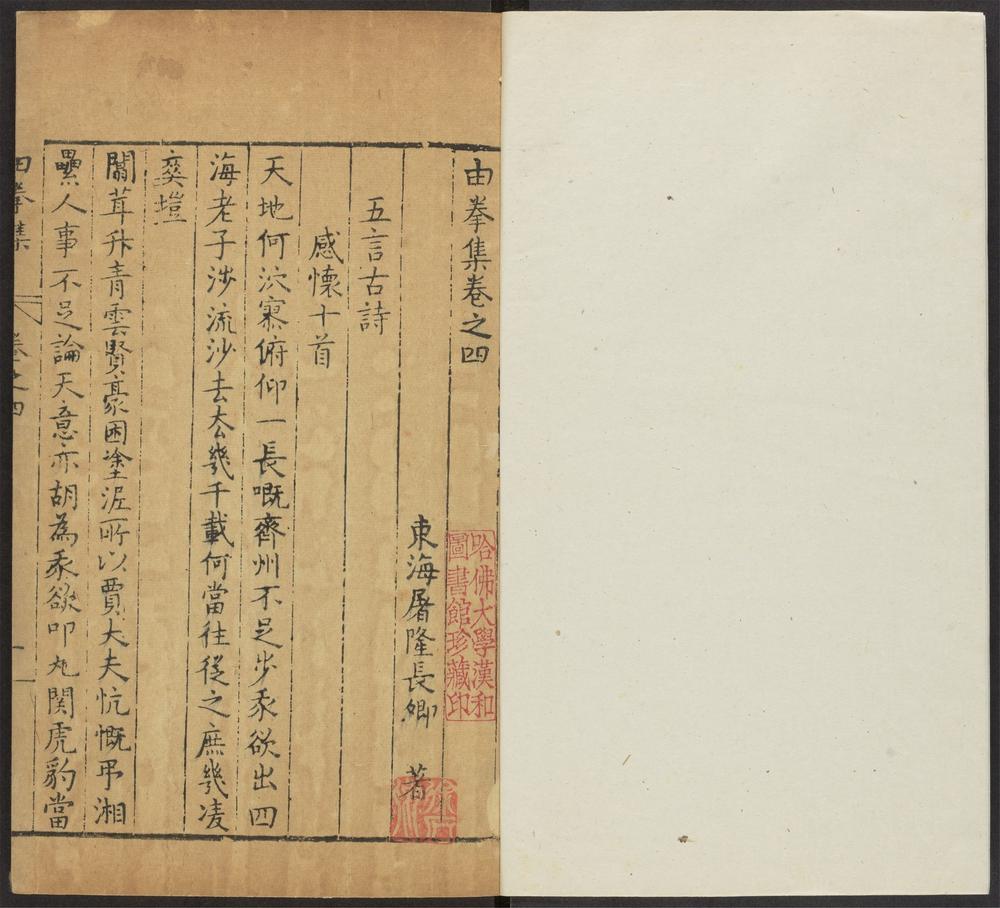 哈佛大學漢和
圖書館珍藏印
由拳集卷之四
東海屠隆長卿　著
五言古詩
感懷十首
天地何泬寥俯仰一長嘅齊州不足步我欲出四
海老子涉流沙去去幾千載何當往從之庶幾凌
爽塏
闒茸升青雲賢豪困塗泥所以賈大夫忼慨弔湘
纍人事不足論天意亦胡為我欲叩九関虎豹當
由拳集　卷之四　一